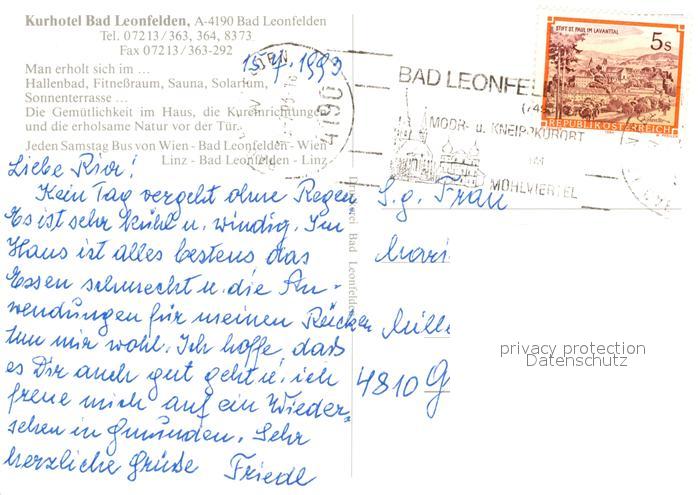 Kurhotel Bad Leonfelden, A-4190 Bad Leonfelden
Tel. 07213/363, 364, 8373
Fax 07213/363-292
Man erholt sich im ...
Hallenbad, Fitneßraum, Sauna, Solarium,
Sonnenterrasse ...
Die Gemütlichkeit im Haus, die Kureinrichtungen
und die erholsame Natur vor der Tür.
Jeden Samstag Bus von Wien - Bad Leonfelden - Wien
Linz - Bad Leonfelden - Linz
15.7.1993
4190
BAD LEONFEL
(749
MOOR- u. KNEIPPKURORT
IM
MÜHLVIERTEL
STIFT ST. PAUL IM LAVANTTAL
5s
REPUBLIK ÖSTERREICH
Liebe Rior!
Kein Tag vergeht ohne Regen
Es ist sehr kühl u. windig. Im
Haus ist alles bestens das
Essen schmeckt u. die An-
wendungen für meinen Rücken
tun mir wohl. Ich hoffe, daß
es Dir auch gut geht u. ich
freue mich auf ein Wieder-
sehen in Gmunden. Sehr
herzliche Grüße Friedl
Bad Leonfelden
S.g. Frau
Mari
Mill
4810 G
privacy protection
Datenschutz